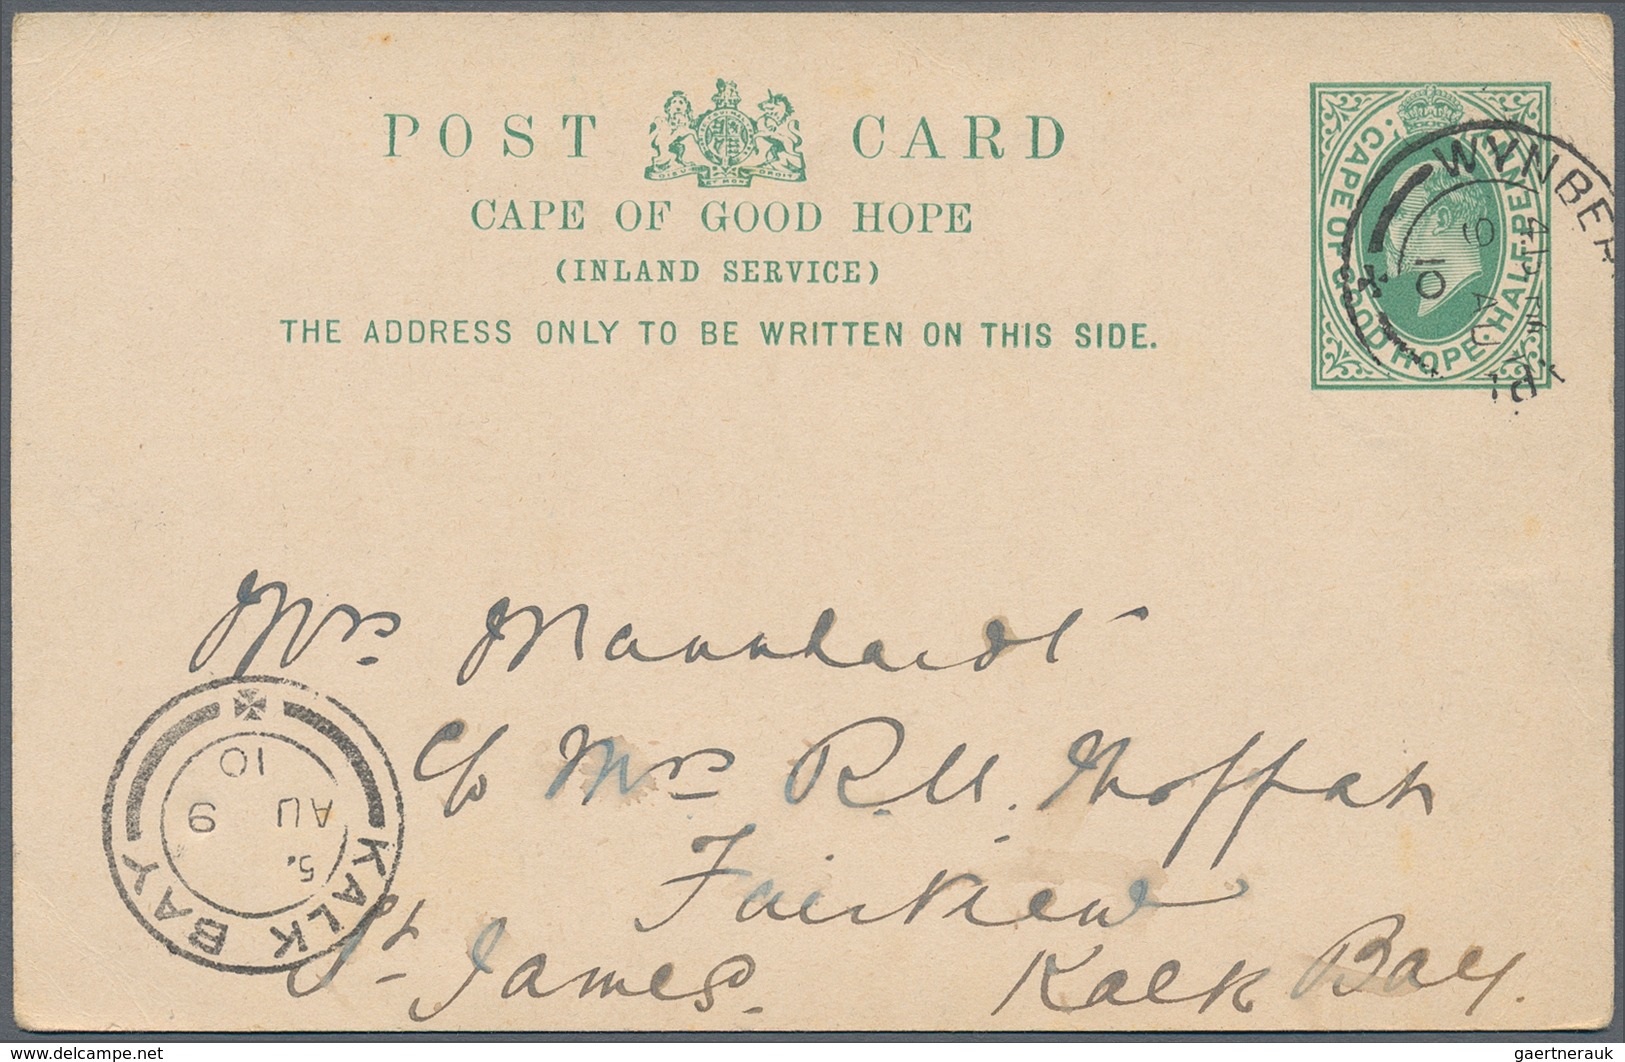 POST CARD
DIEU ET MON DROIT
CAPE OF GOOD HOPE
(INLAND SERVICE)
THE ADDRESS ONLY TO BE WRITTEN ON THIS SIDE.
CAPE OF GOOD HOPE · HALFPENNY
WYNBER
9 AU
10
Mrs Mannhardt
c/o Mrs R.U. Moffat
Fairview
St James. Kalk Bay.
KALK BAY
5.
AU 9
10
delcampe.net
gaertnerauk